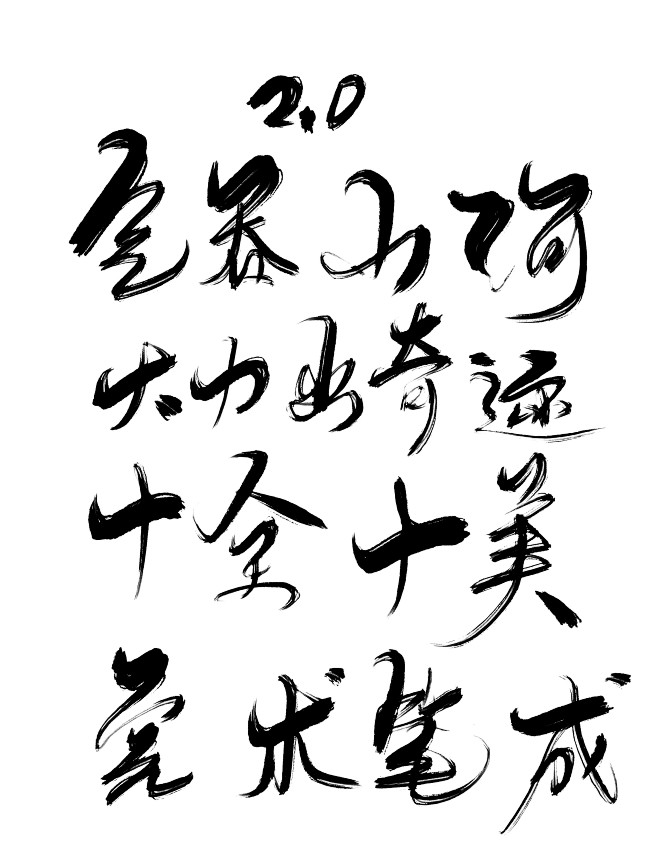 2.0
界山河
大力出奇迹
十全十美
术笔成